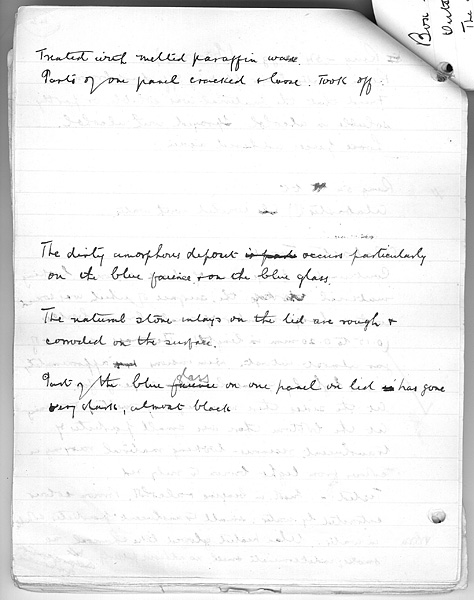 Treated with melted paraffin wax.
Parts of one panel cracked & loose. Took off.
The dirty amorphous deposit is part occurs particularly
on the blue faience & on the blue glass.
The natural stone inlays on the lid are rough &
corroded on the surface.
glass
Part of the blue faience on one panel on lid has gone
very dark, almost black
Box
The